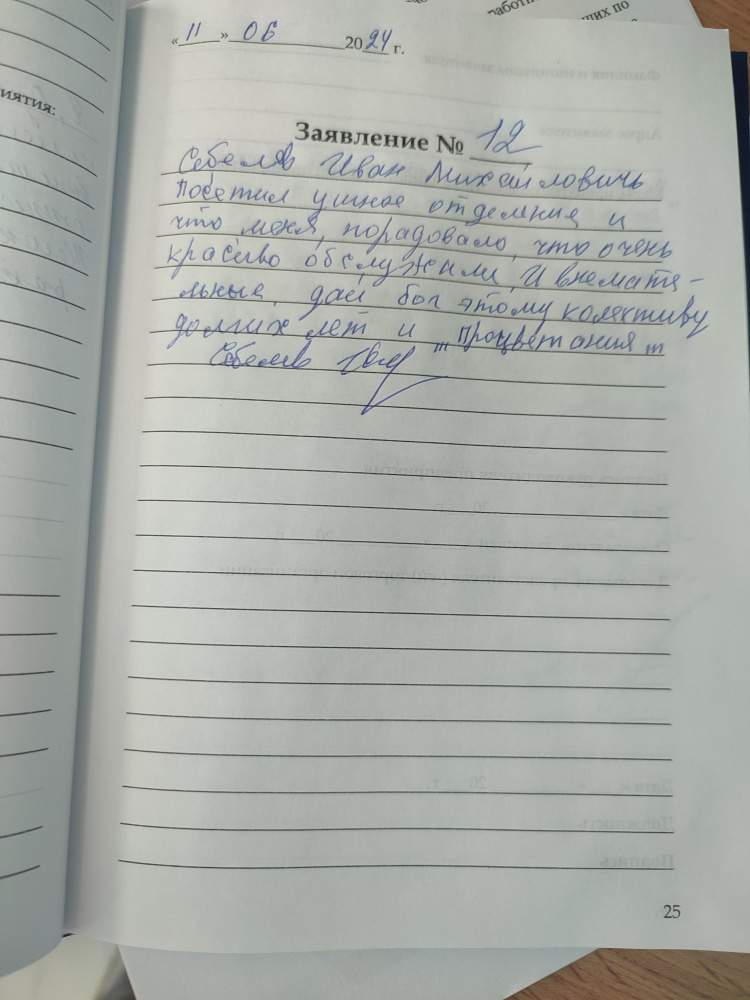 работ
щих по
« 11 » 06 2024 г.
иятия:
Заявление № 12
Себелев Иван Михайловичь
посетил ушное отделния и
что меня, порадовало, что очень
красиво обслужили, И внемате-
льные, дай бог этому колективу
долгих лет и "процветания"
Себелев
25